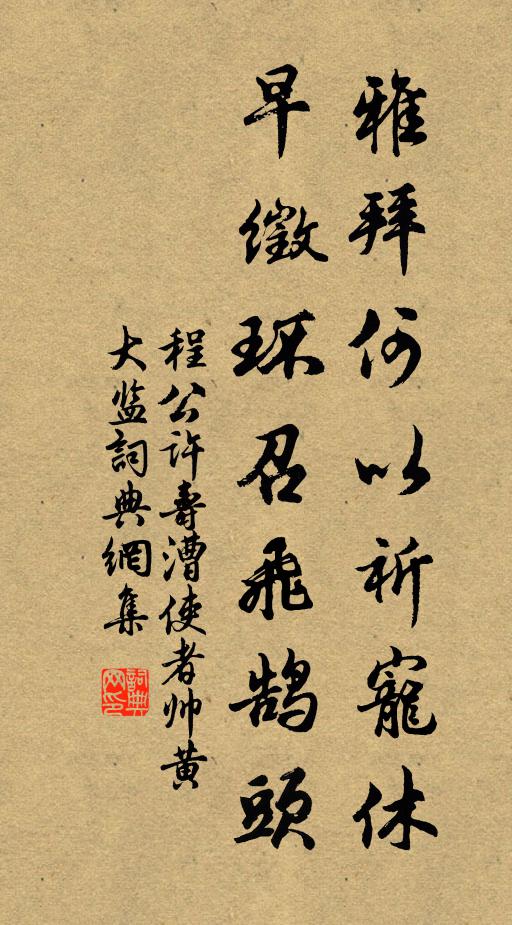 雅拜何以祈寵休
早徵環召飛鵠頭
程公許壽漕使者帅黄
大监詞典網集
詞典网印